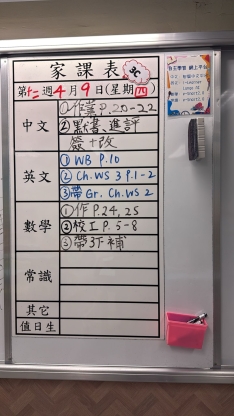 家課表
第十二週4月9日(星期四)
中文
①作業P.20-22
②點書、進評
簽+改
英文
① WB P.10
② Ch. WS 3 P.1-2
③帶 Gr. Ch. WS 2
數學
①作 P.24, 25
②校工 P.5-8
③帶3下補
常識
其它
值日生